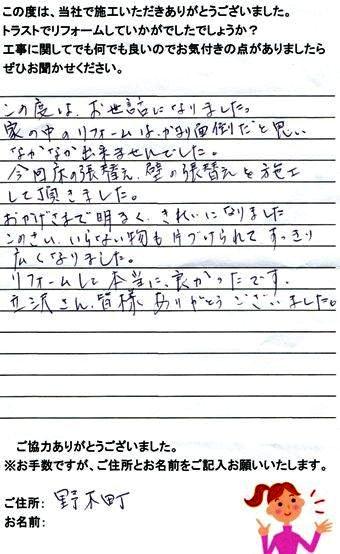 この度は、当社で施工いただきありがとうございました。
トラストでリフォームしていかがでしたでしょうか？
工事に関してでも何でも良いのでお気付きの点がありましたら
ぜひお聞かせください。
この度は、お世話になりました。
家の中のリフォームは、かなり面倒だと思い
なかなか出来ませんでした。
今回床の張替え、壁の張替えを施工
して頂きました。
おかげさまで明るく、きれいになりました
このさい、いらない物も片づけられてすっきり
広くなりました。
リフォームして本当に、良かったです。
立沢さん、皆様ありがとうございました。
ご協力ありがとうございました。
※お手数ですが、ご住所とお名前をご記入お願いいたします。
ご住所: 野木町
お名前: